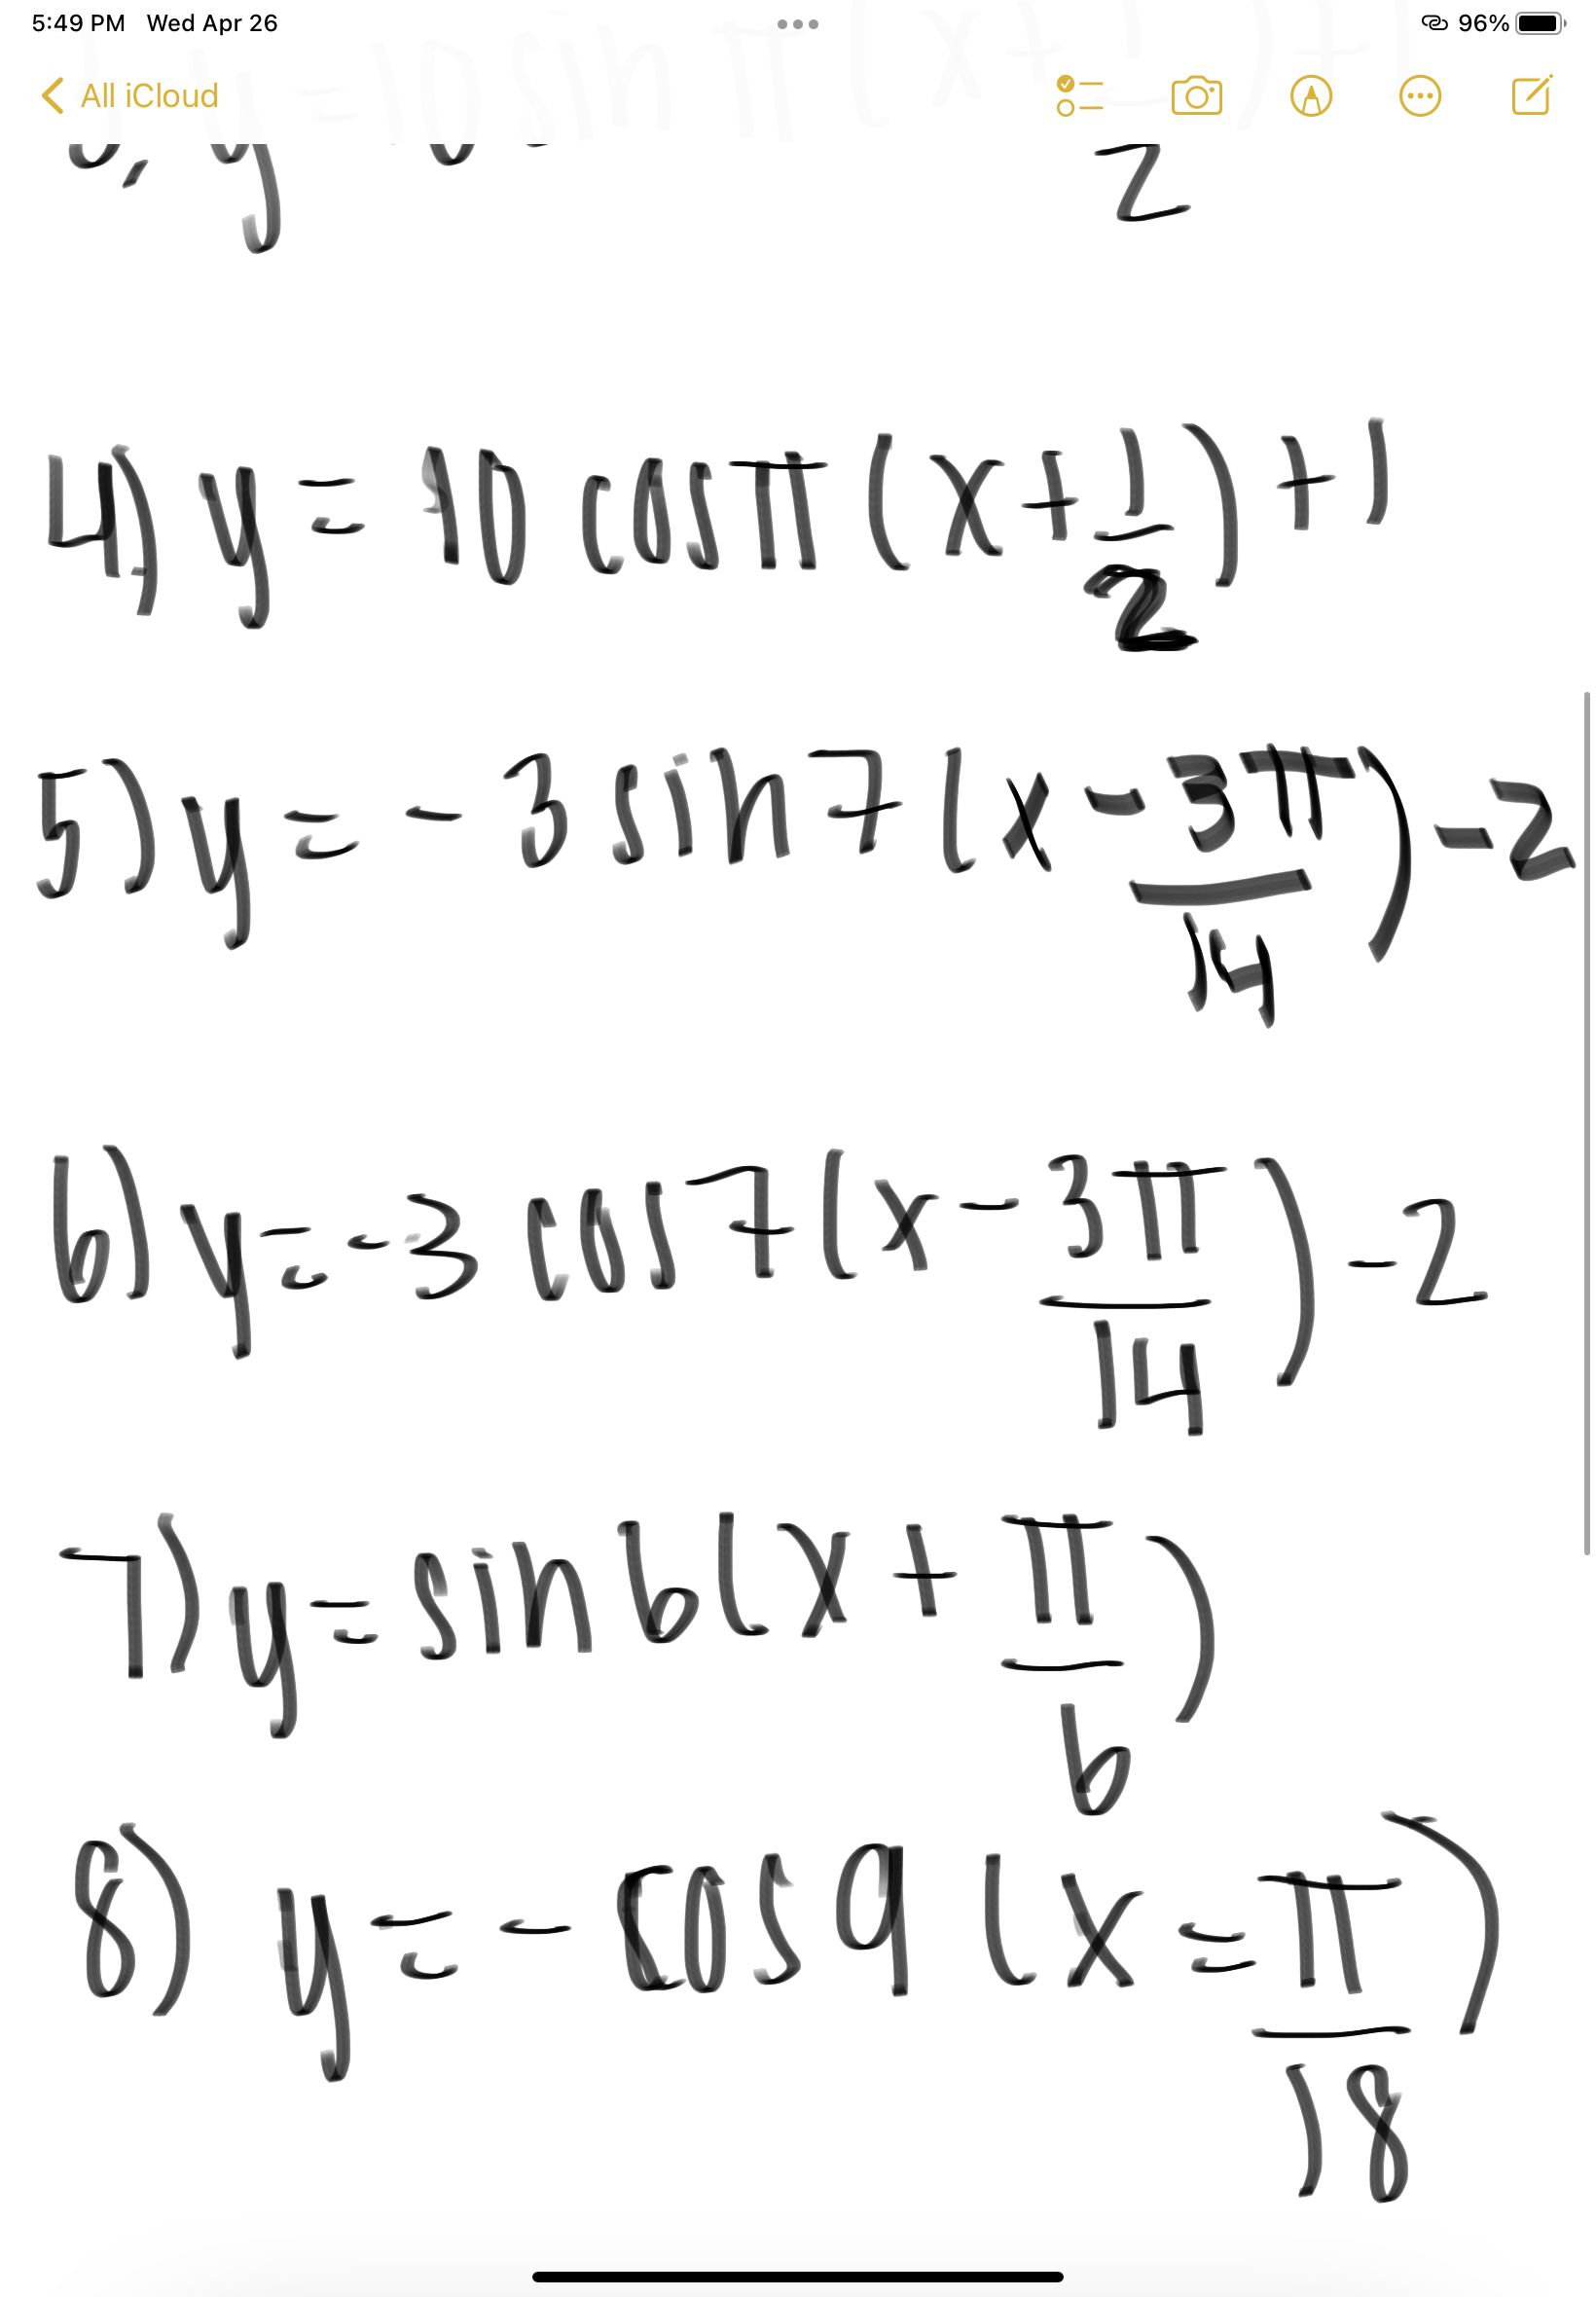 5:49 PM Wed Apr 26 96%
All iCloud
3) y = 10 sin π (x + 1/2) + 1
4) y = 10 cos π (x + 1/2) + 1
5) y = - 3 sin 7 (x - 3π/14) - 2
6) y = -3 cos 7 (x - 3π/14) - 2
7) y = sin 6 (x + π/6)
8) y = - cos 9 (x = π/18)